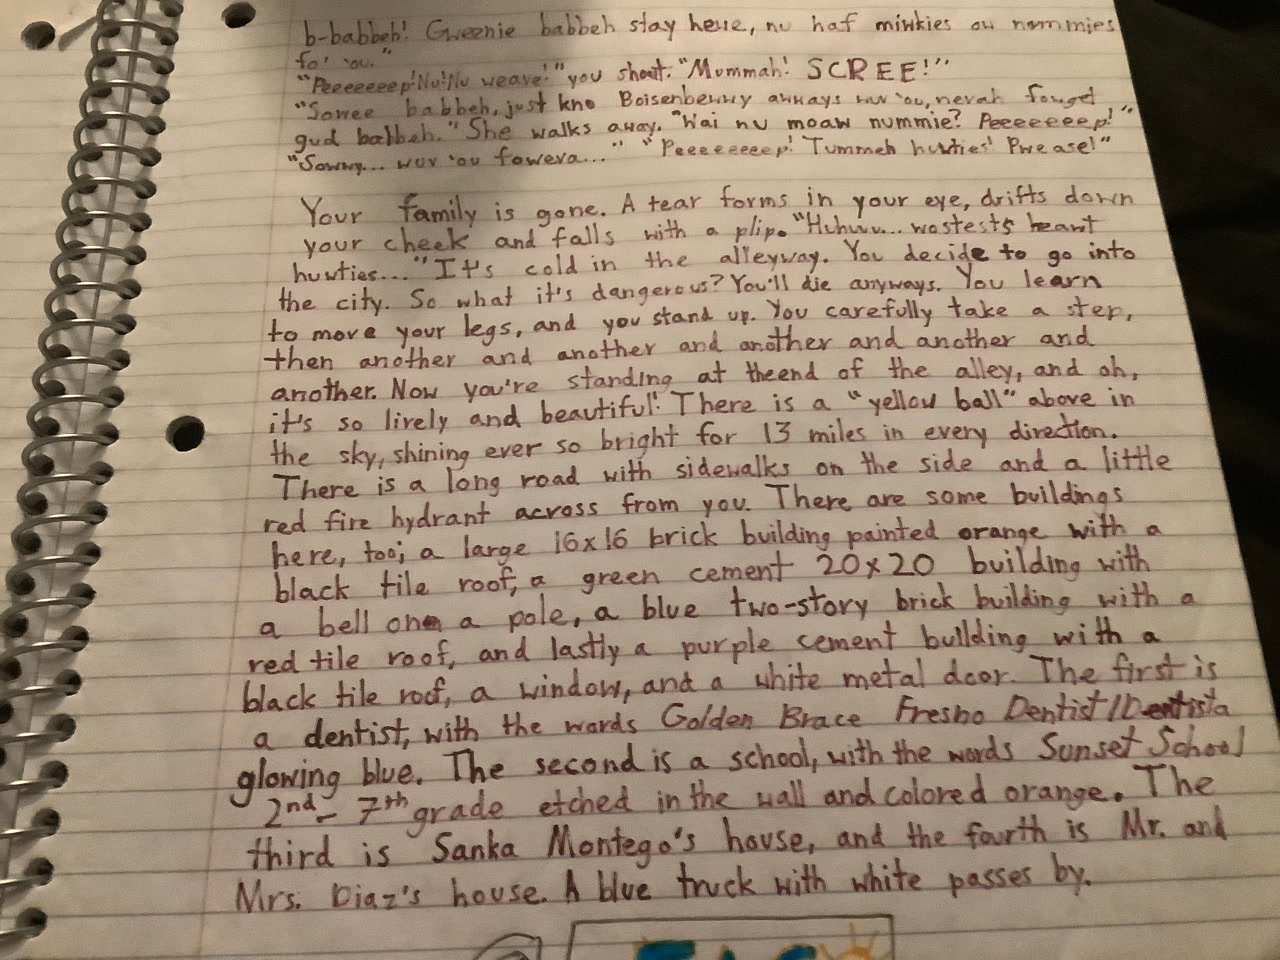 b-babbeh! Gweenie babbeh stay hewe, nu haf miwkies ow nommies
fo' 'ou."
"Peeeeeeep! Nu! Nu weave!" you shout. "Mummah! SCREE!"
"Sowee babbeh, just kno Boisenbewwy awways wuv 'ou, nevah fouget
gud babbeh." She walks away. "Wai nu moaw nummie? Peeeeeeep!"
"Sowwy... wuv 'ou foweva..." "Peeeeeeeep! Tummeh huwties! Pwease!"
Your family is gone. A tear forms in your eye, drifts down
your cheek and falls with a plip. "Huhuuu... wostests heawt
huwties..." It's cold in the alleyway. You decide to go into
the city. So what it's dangerous? You'll die anyways. You learn
to move your legs, and you stand up. You carefully take a step,
then another and another and another and another and
another. Now you're standing at the end of the alley, and oh,
it's so lively and beautiful! There is a "yellow ball" above in
the sky, shining ever so bright for 13 miles in every direction.
There is a long road with sidewalks on the side and a little
red fire hydrant across from you. There are some buildings
here, too; a large 16x16 brick building painted orange with a
black tile roof, a green cement 20x20 building with
a bell on a pole, a blue two-story brick building with a
red tile roof, and lastly a purple cement building with a
black tile roof, a window, and a white metal door. The first is
a dentist, with the words Golden Brace Fresno Dentist/Dentista
glowing blue. The second is a school, with the words Sunset School
2nd - 7th grade etched in the wall and colored orange. The
third is Sanka Montego's house, and the fourth is Mr. and
Mrs. Diaz's house. A blue truck with white passes by.